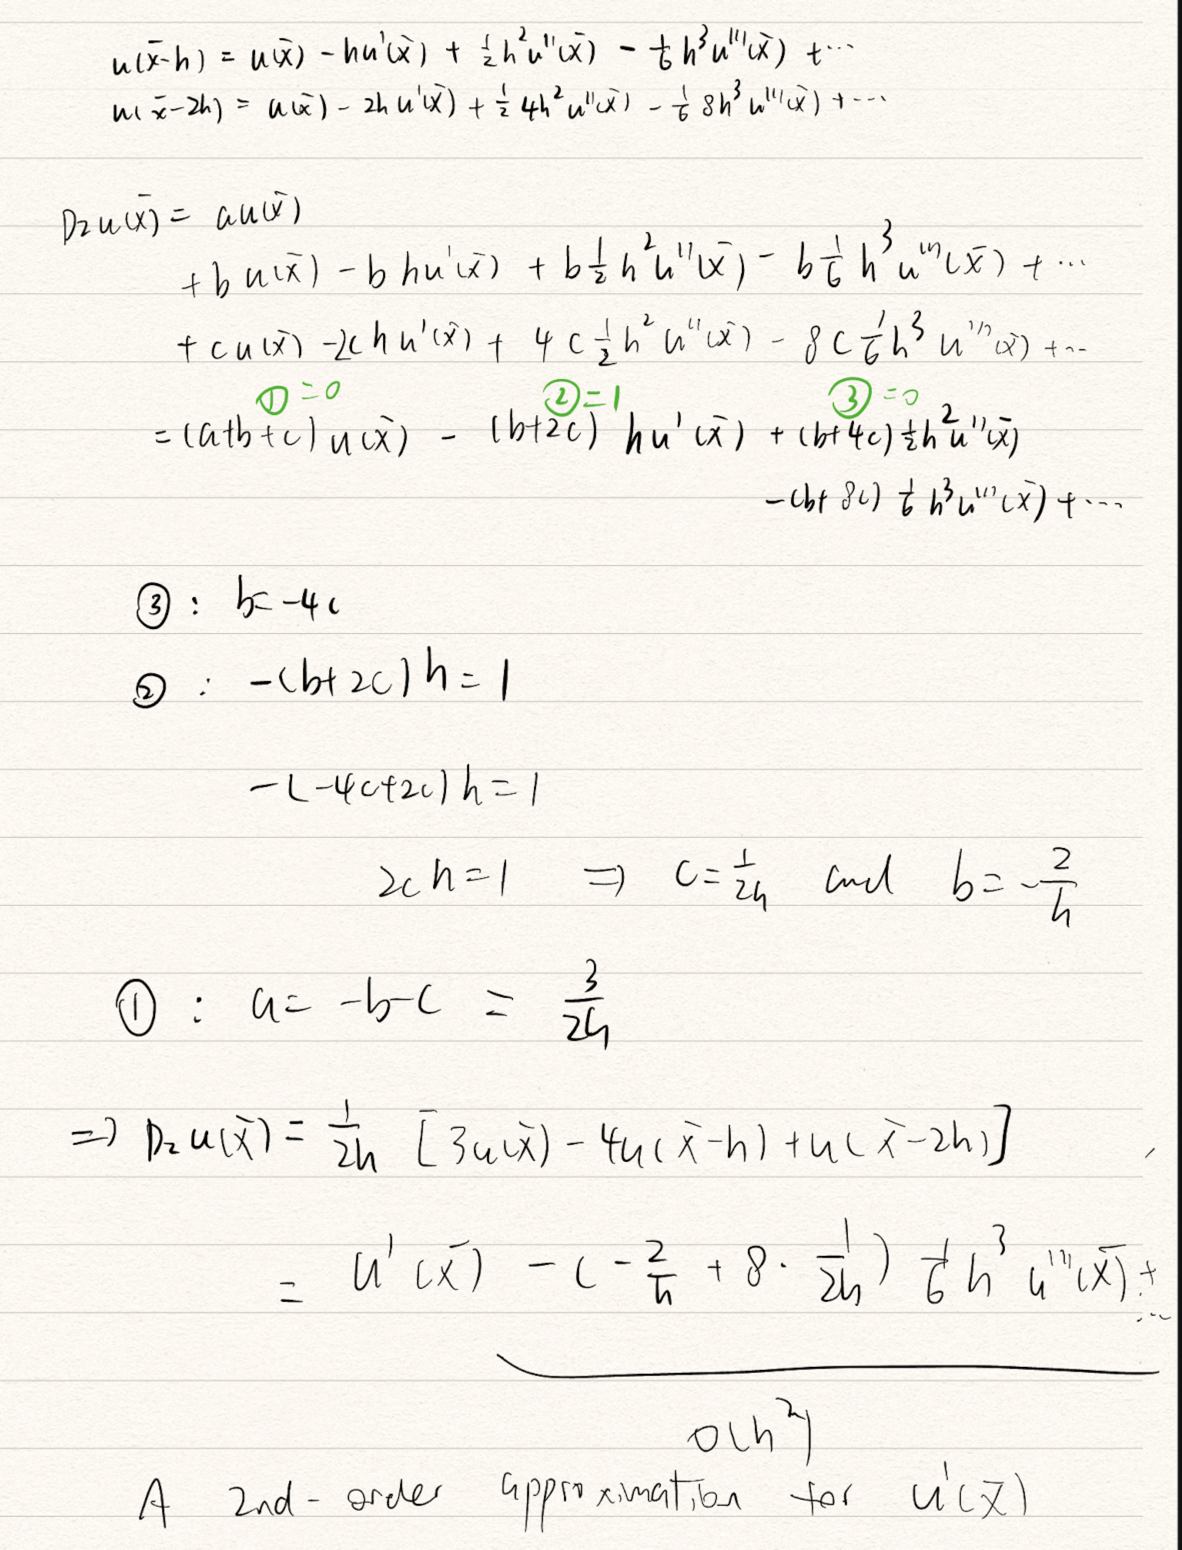 u(x̄-h) = u(x̄) - hu'(x̄) + ½h²u''(x̄) - ⅙h³u'''(x̄) + ⋯
u(x̄-2h) = u(x̄) - 2hu'(x̄) + ½4h²u''(x̄) - ⅙8h³u'''(x̄) + ⋯
D₂u(x̄) = au(x̄)
+ bu(x̄) - bhu'(x̄) + b½h²u''(x̄) - b⅙h³u'''(x̄) + ⋯
+ cu(x̄) - 2chu'(x̄) + 4c½h²u''(x̄) - 8c⅙h³u'''(x̄) + ⋯
① = 0 ② = 1 ③ = 0
= (a+b+c)u(x̄) - (b+2c)hu'(x̄) + (b+4c)½h²u''(x̄)
- (b+8c)⅙h³u'''(x̄) + ⋯
③ : b = -4c
② : -(b+2c)h = 1
-(-4c+2c)h = 1
2ch = 1 ⇒ c = 1/2h and b = -2/h
① : a = -b-c = 3/2h
⇒ D₂u(x̄) = 1/2h [3u(x̄) - 4u(x̄-h) + u(x̄-2h)]
= u'(x̄) - (-2/h + 8·1/2h)⅙h³u'''(x̄) + ⋯
O(h²)
A 2nd-order approximation for u'(x̄)